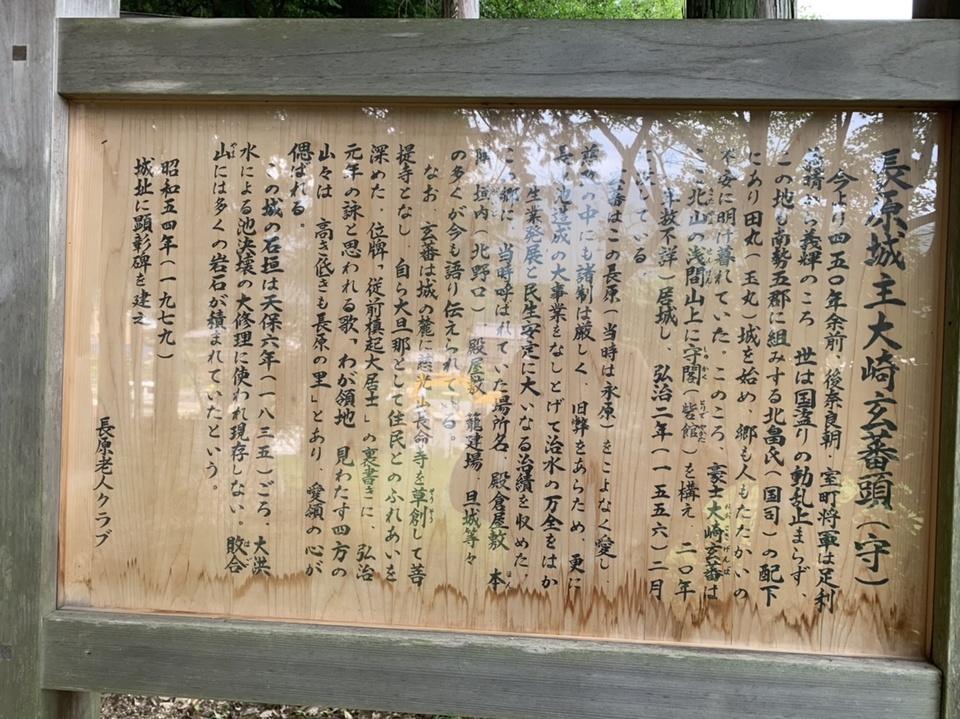 長原城主大崎玄蕃頭(守)
今より四五〇年余前、後奈良朝、室町将軍は足利
義晴から義輝のころ 世は国盗りの動乱止まらず、
この地も南勢五郡に組みする北畠氏(国司)の配下
にあり田丸(玉丸)城を始め、郷も人もたたかいの
不安に明け暮れていた。このころ、豪士大崎玄蕃は
北山の浅間山上に守閣(砦館)を構え 二〇年
年故不詳)居城し、弘治二年(一五五六)二月
ている
玄蕃はこの長原(当時は永原)をこよなく愛し
の中にも諸制は厳しく、旧弊をあらため、更に
長 池造成の大事業をなしとげて治水の万全をはか
生業発展と民生安定に大いなる治績を収めた。
郷に、当時呼ばれていた場所名、殿倉屋敷 本
垣内(北野口) 殿屋敷 籠建場、旦城等々
の多くが今も語り伝えられている。
なお 玄蕃は城の麓に慈光山長命寺を草創して菩
提寺となし 自ら大旦那として住民とのふれあいを
深めた。位牌「従前槇起大居士」の裏書きに、弘治
元年の詠と思われる歌、「わが領地 見わたす四方の
山々は 高き低きも長原の里」とあり、愛領の心が
偲ばれる。
この城の石垣は天保六年(一八三五)ごろ、大洪
水による池決壊の大修理に使われ現存しない。敗合
山には多くの岩石が積まれていたという。
昭和五四年(一九七九)
城址に顕彰碑を建え
長原老人クラブ